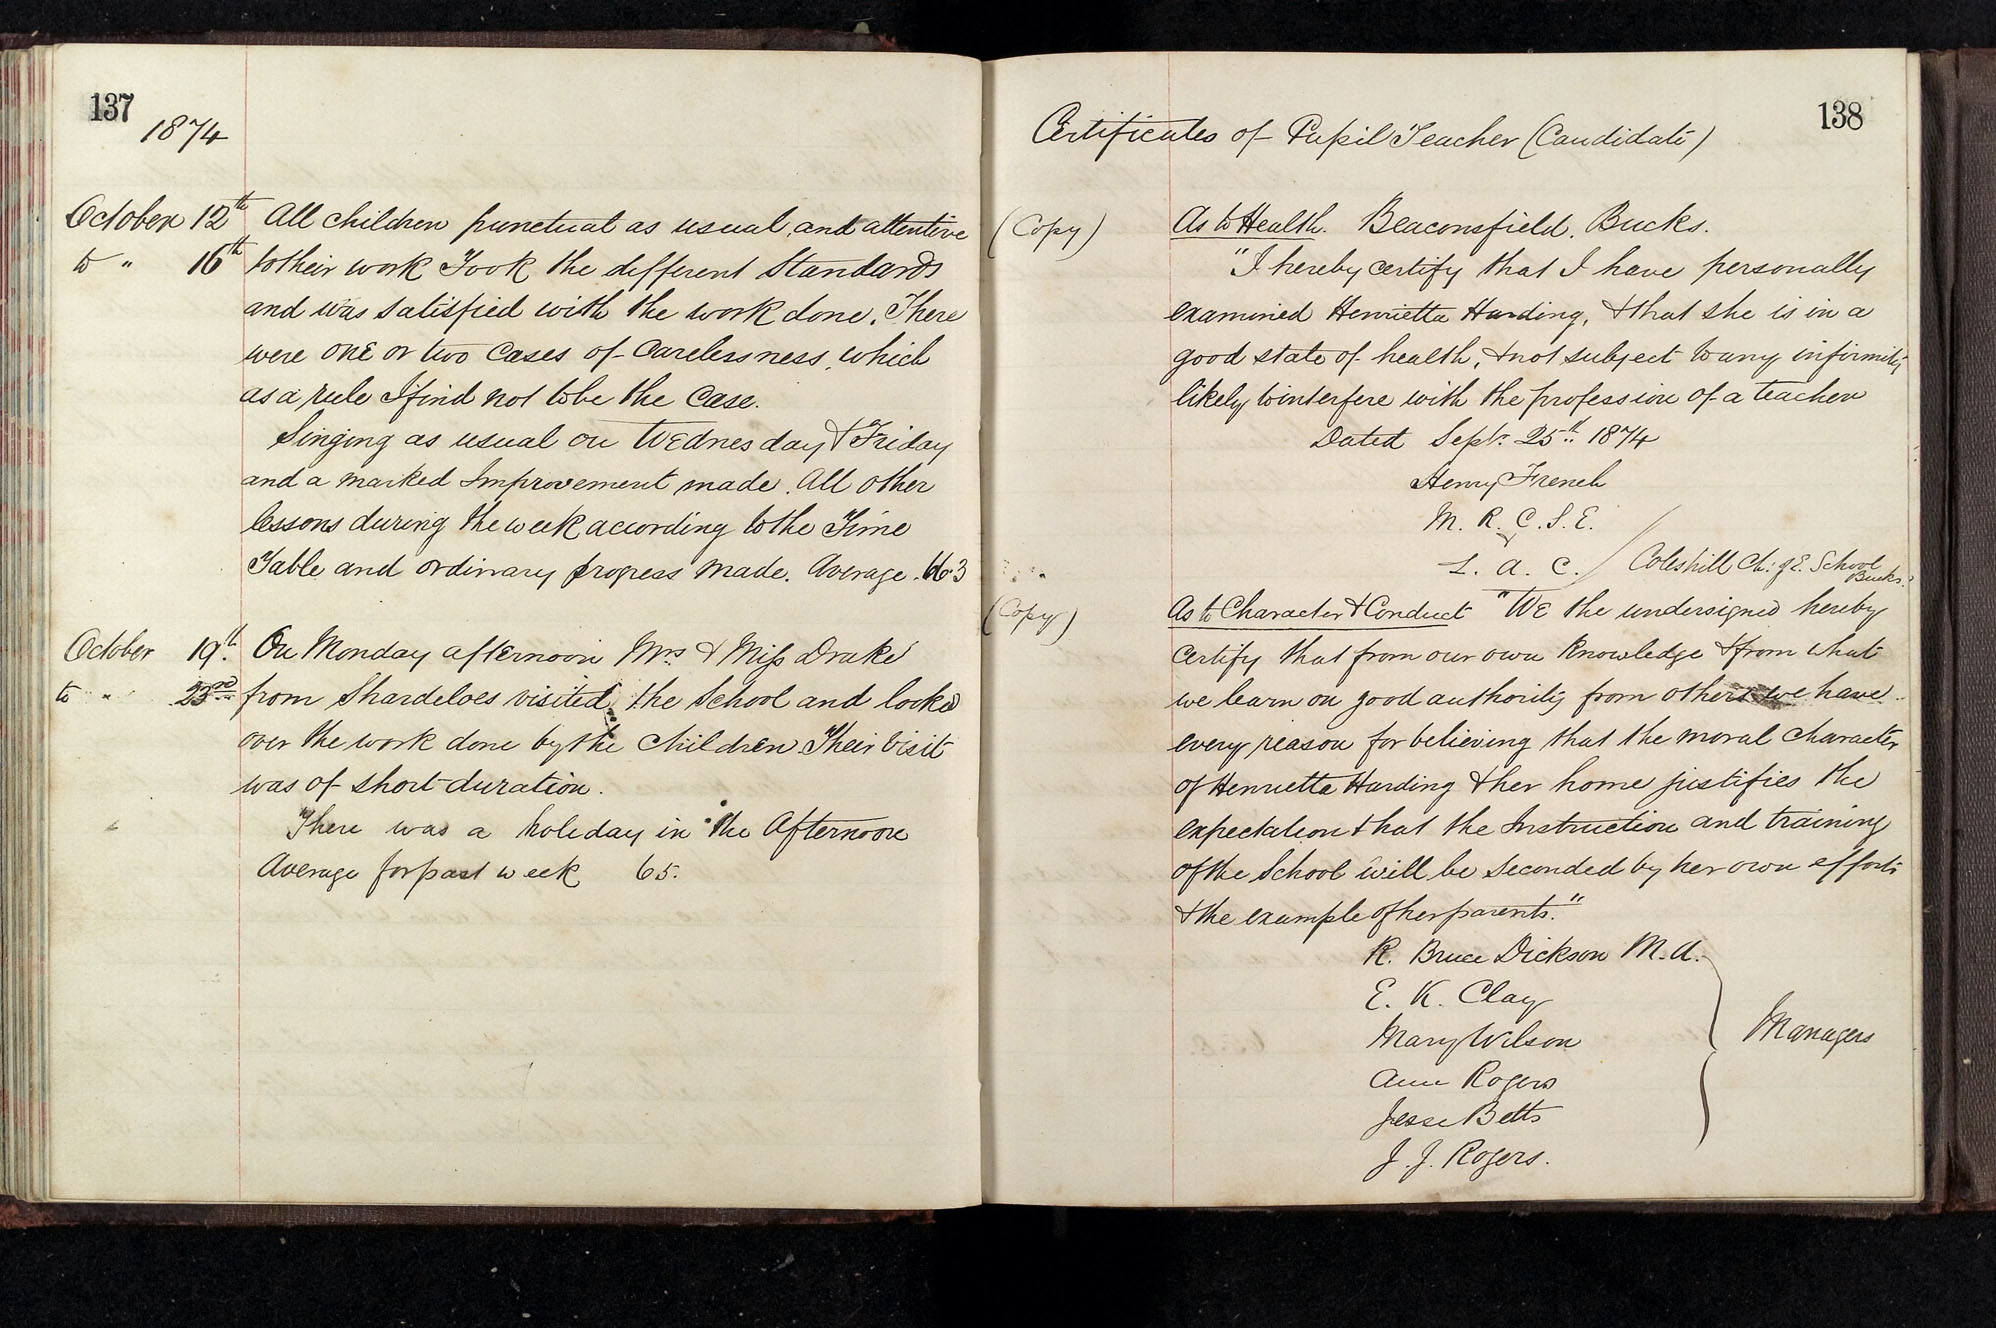 137
1874
October 12th All children punctual as usual and attentive
to " 16th to their work Took the different Standards
and was satisfied with the work done. There
were one or two cases of carelessness, which
as a rule I find not to be the case.
Singing as usual on Wednesday & Friday
and a marked Improvement made. All other
lessons during the week according to the Time
Table and ordinary progress made. Average. 66.3
October 19th. On Monday afternoon Mrs & Miss Drake
to " 23rd from Shardeloes visited the School and looked
over the work done by the Children. Their Visit
was of short duration.
There was a holiday in the Afternoon
Average for past week 65.
138
Certificates of Pupil Teacher (Candidate)
(Copy) As to Health. Beaconsfield. Bucks.
"I hereby certify that I have personally
examined Henrietta Harding, & that she is in a
good state of health, & not subject to any infirmity
likely to interfere with the profession of a teacher
Dated Sept. 25th. 1874
Henry French
M. R. C. S. E.
L. A. C. / Coleshill Ch: of E. School
Bucks.
(Copy) As to Character & Conduct "We the undersigned hereby
certify that from our own knowledge & from what
we learn on good authority from others we have
every reason for believing that the moral character
of Henrietta Harding & her home justifies the
expectation that the Instruction and training
of the School will be seconded by her own efforts
& the example of her parents."
R. Bruce Dickson M.A.
E. K. Clay
Mary Wilson
Managers
Ann Rogers
Jesse Betts
J. J. Rogers.